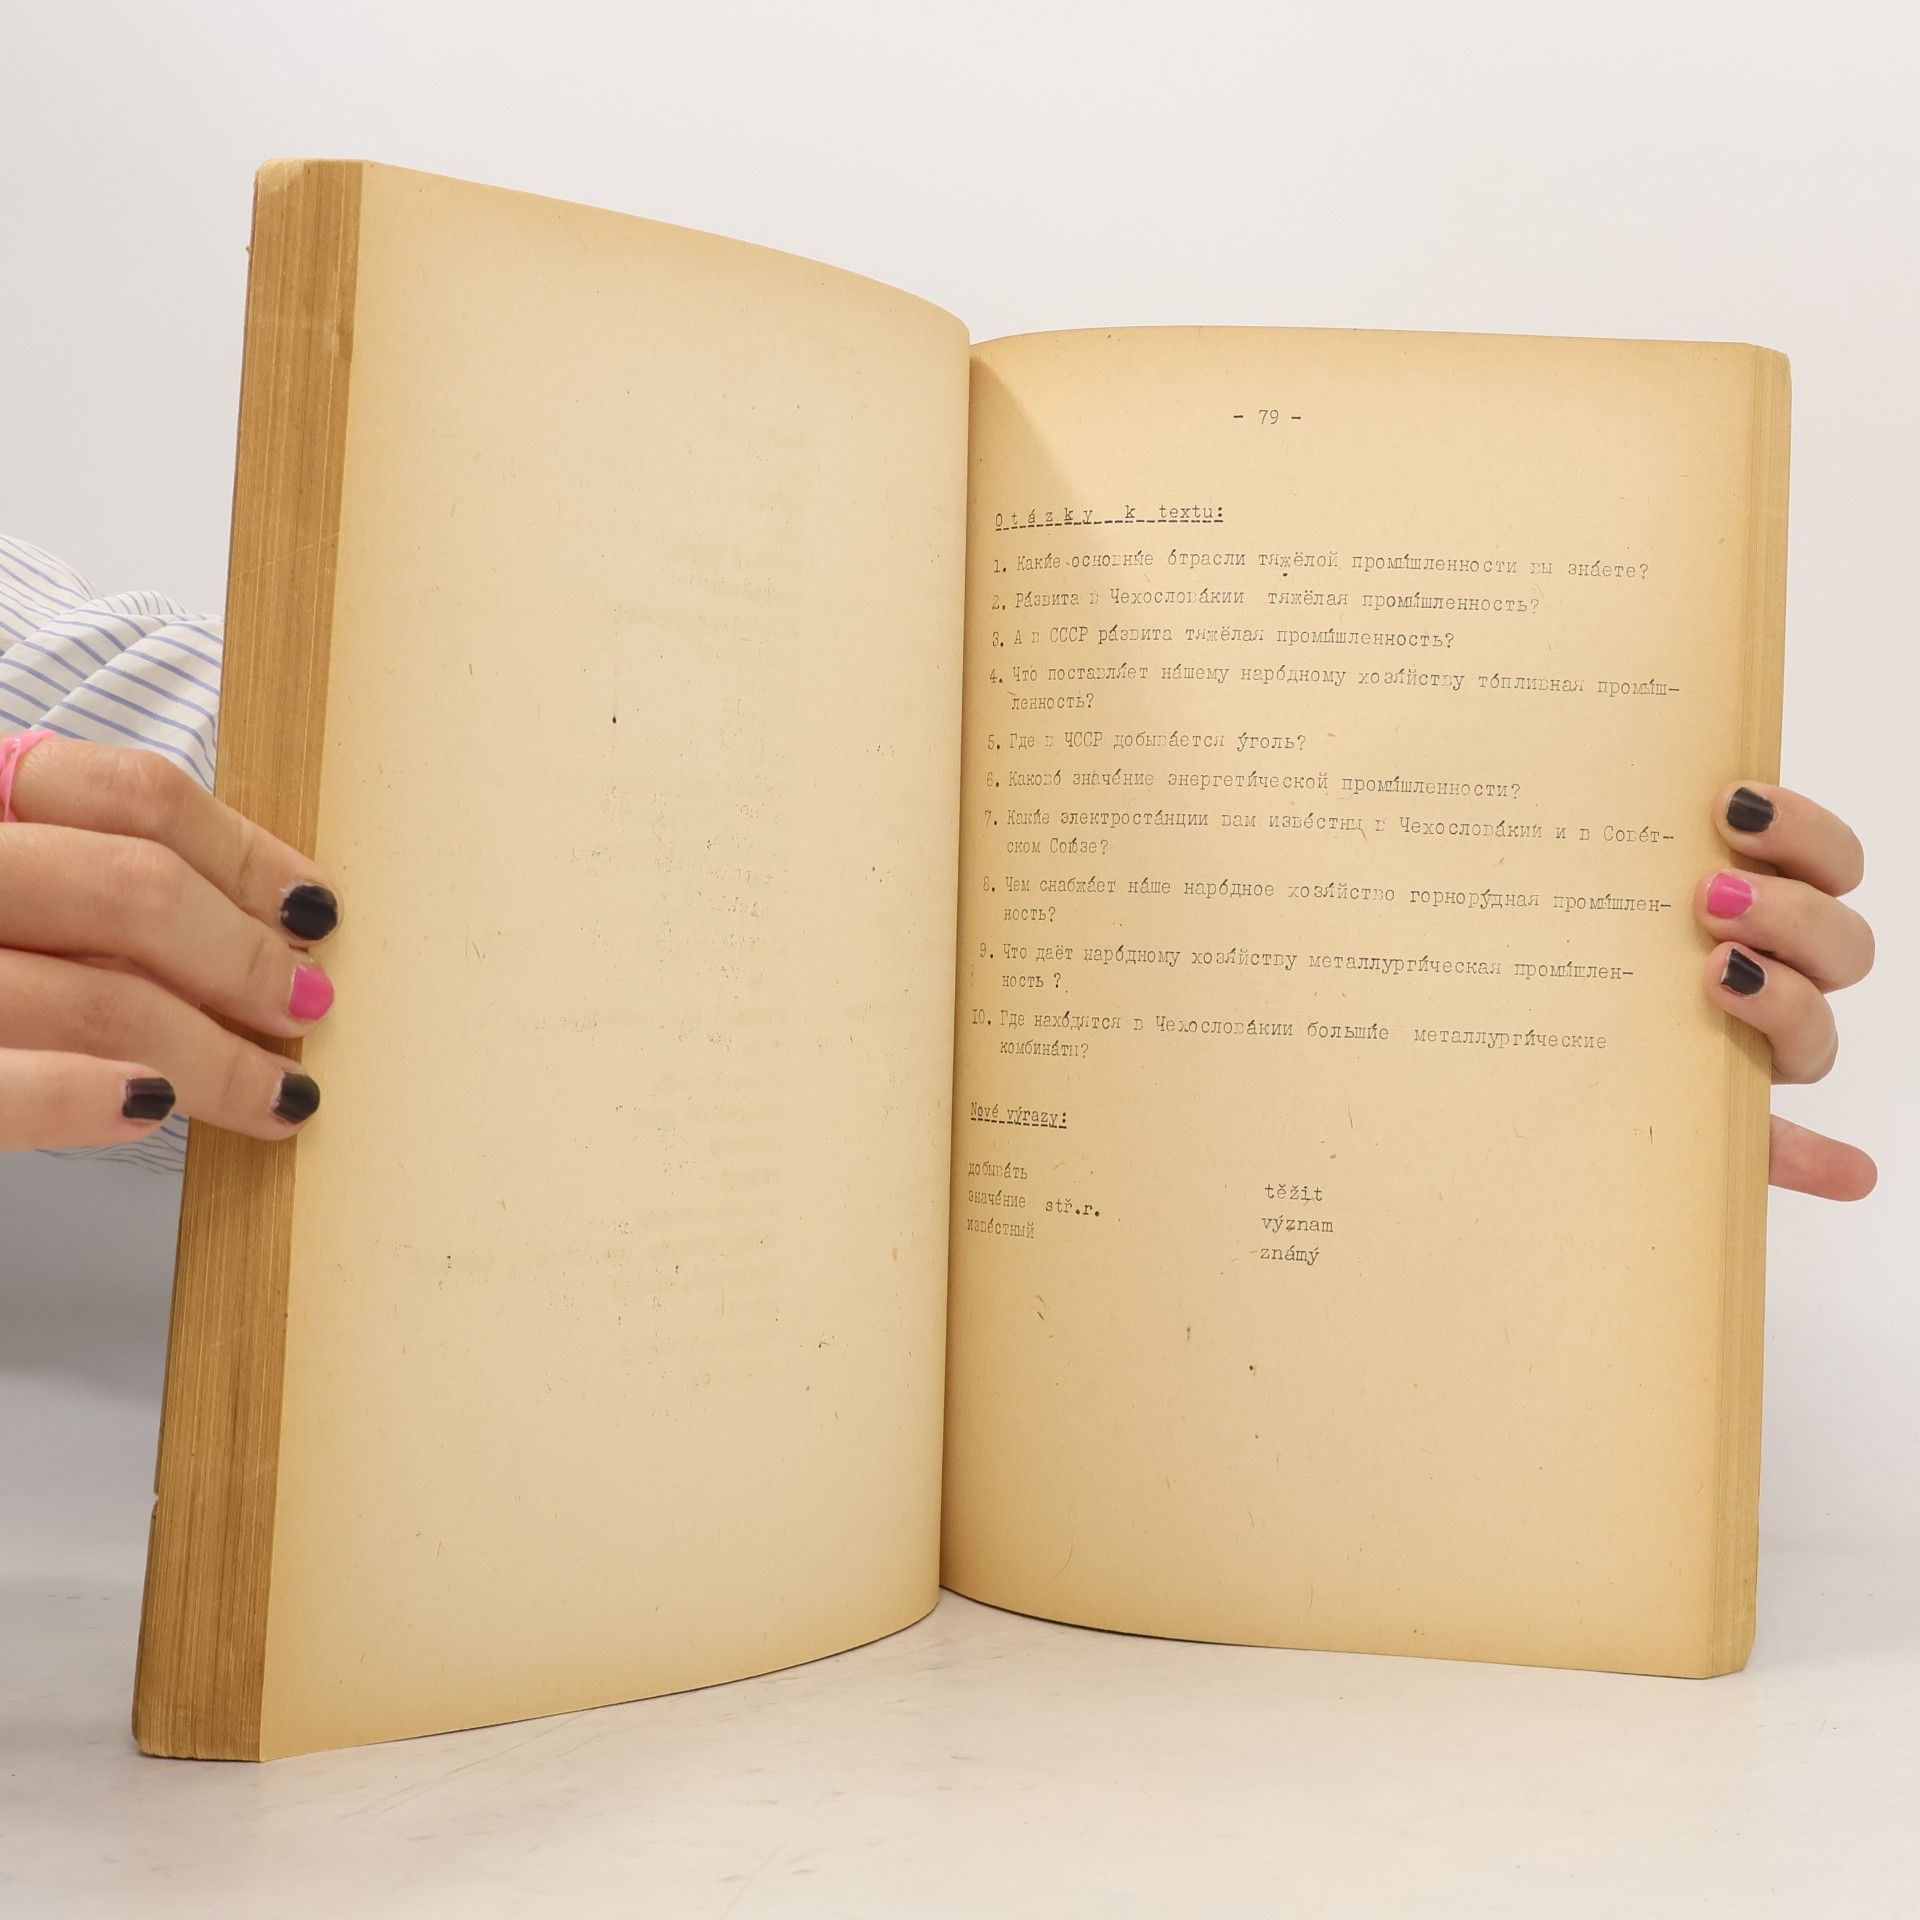 - 79 -
Otázky k textu:
1. Каки́е основны́е о́трасли тяжёлой промы́шленности вы зна́ете?
2. Ра́звита в Чехослова́кии тяжёлая промы́шленность?
3. А в СССР ра́звита тяжёлая промы́шленность?
4. Что поставля́ет на́шему наро́дному хозя́йству то́пливная промы́ш-
ленность?
5. Где в ЧССР добыва́ется у́голь?
6. Каково́ значе́ние энергети́ческой промы́шленности?
7. Каки́е электроста́нции вам изве́стны в Чехослова́кии и в Сове́т-
ском Сою́зе?
8. Чем снабжа́ет на́ше наро́дное хозя́йство горнору́дная промы́шлен-
ность?
9. Что даёт наро́дному хозя́йству металлурги́ческая промы́шлен-
ность ?
10. Где нахо́дятся в Чехослова́кии больши́е металлурги́ческие
комбина́ты?
Nové výrazy:
добыва́ть těžit
значе́ние stř.r. význam
изве́стный známý